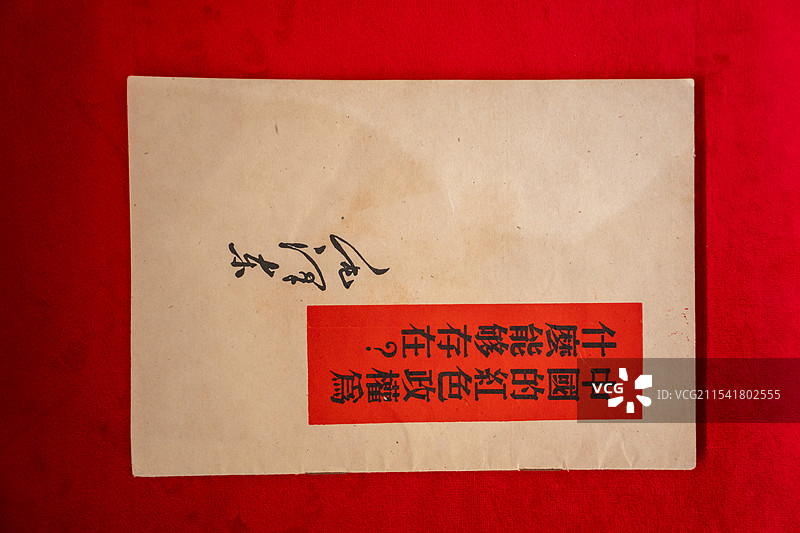 中國的紅色政權爲
什麼能够存在？
毛澤东
VCG
ID: VCG211541802555